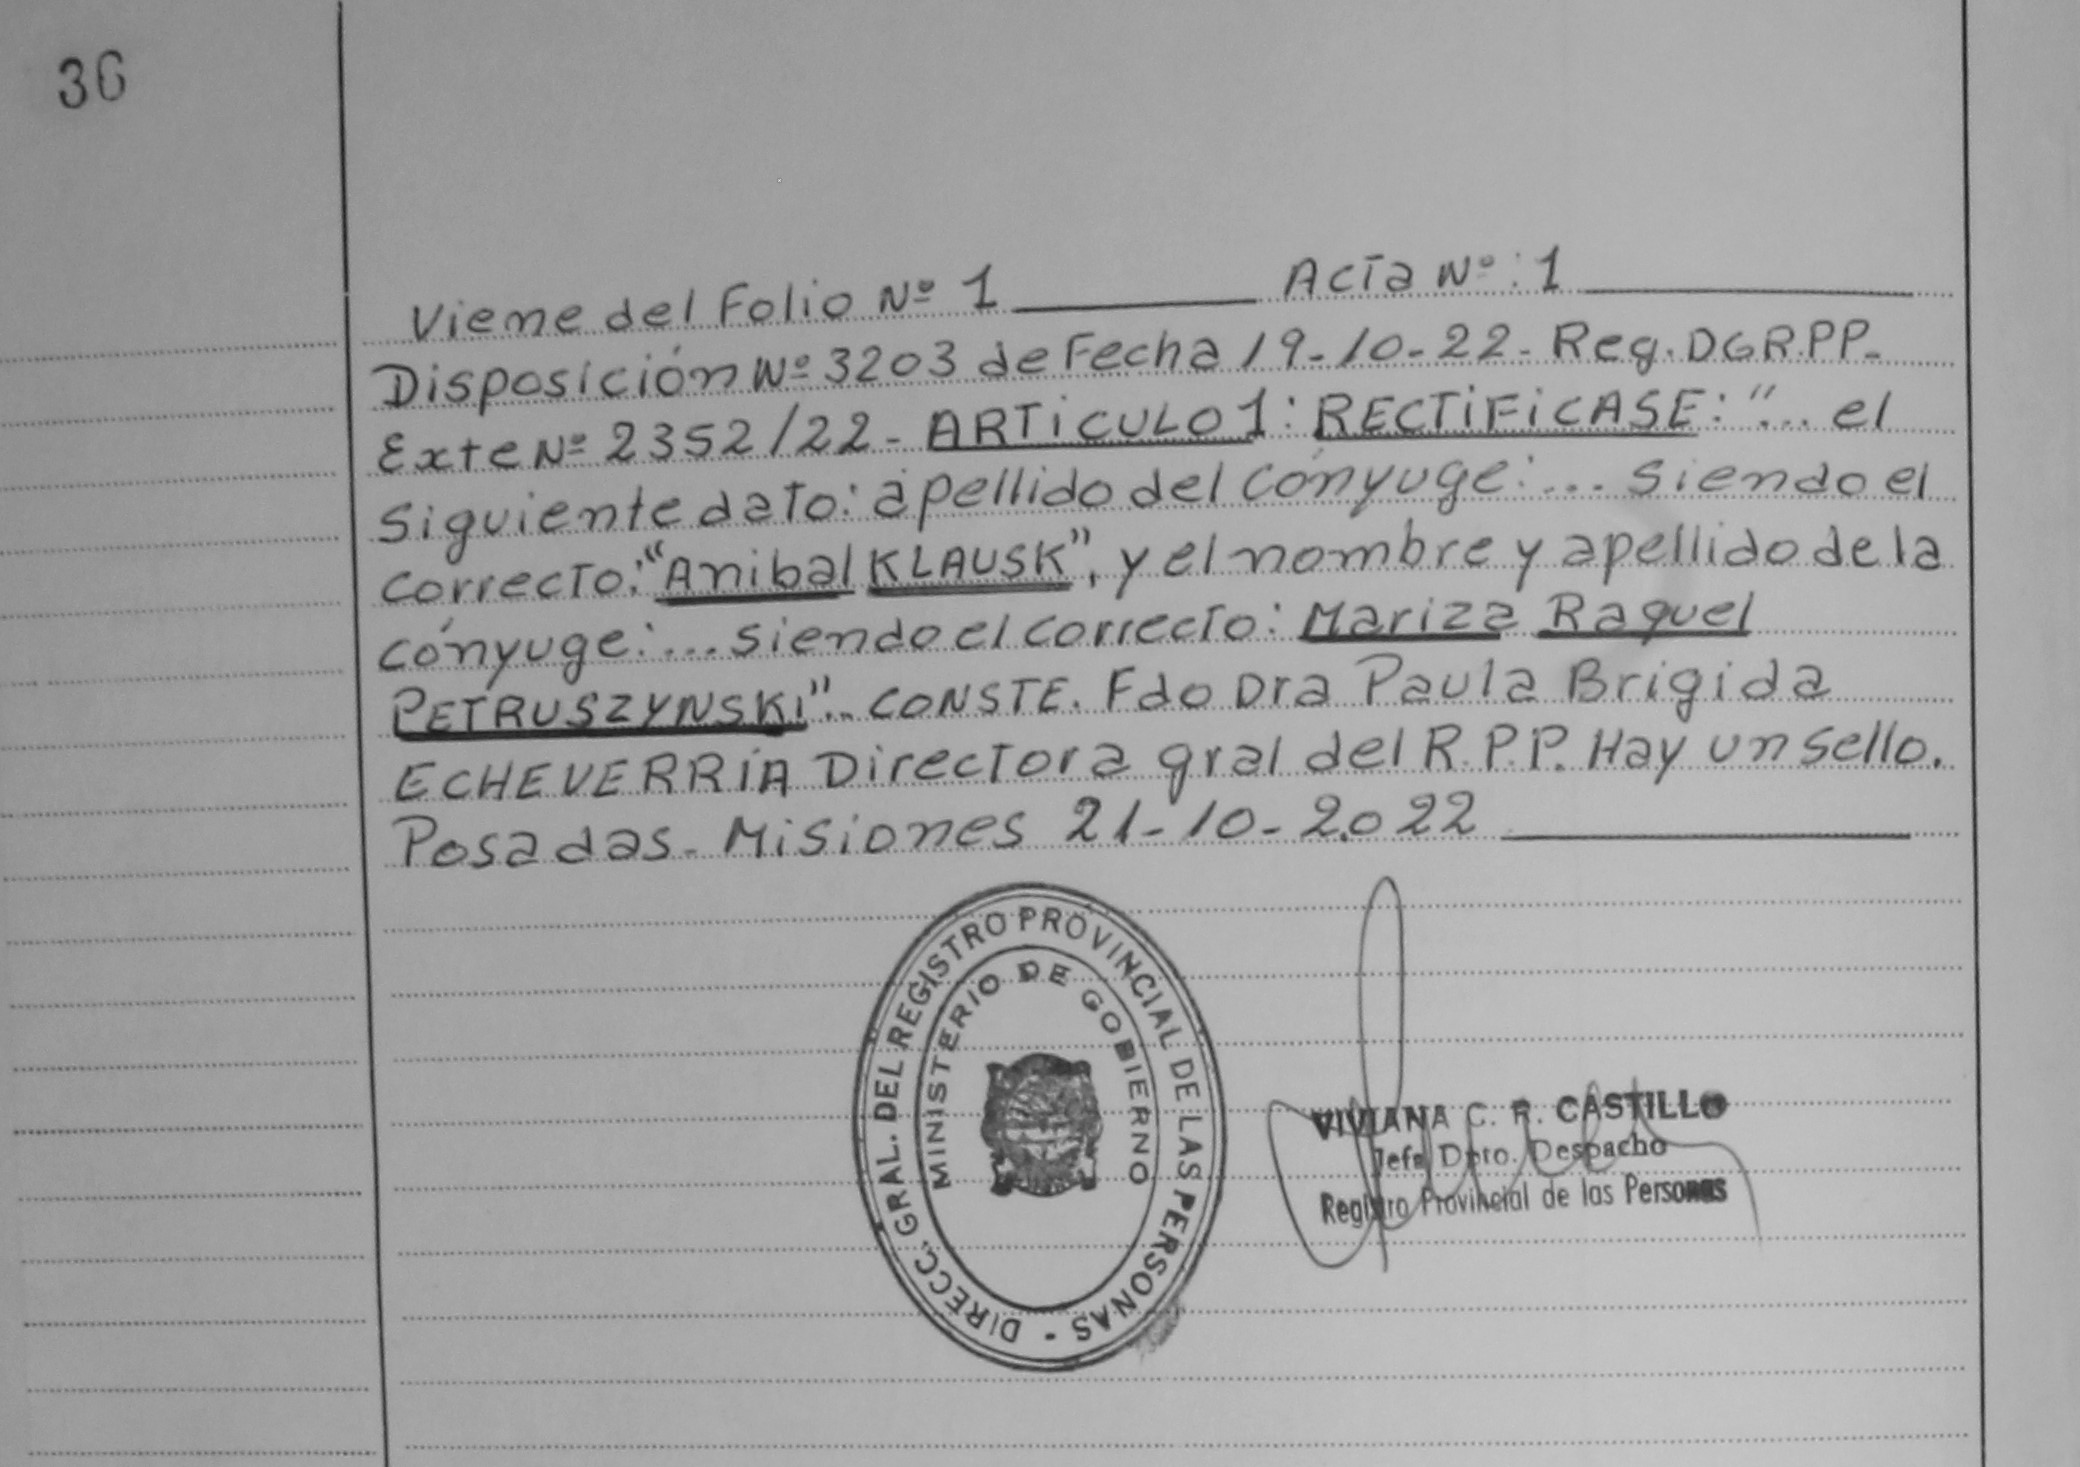 36
Viene del Folio Nº 1 ______ Acta Nº: 1 ______
Disposición Nº 3203 de Fecha 19-10-22- Reg. DGR.PP-
Exte Nº 2352/22- ARTiCULO 1: RECTiFiCASE: "... el
siguiente dato: apellido del cónyuge: ... siendo el
correcto: "Anibal KLAUSK", y el nombre y apellido de la
cónyuge: ... siendo el correcto: Mariza Raquel
PETRUSZYNSKi".. CONSTE. Fdo Dra Paula Brigida
ECHEVERRÍA Directora gral del R.P.P. Hay un sello.
Posadas- Misiones 21-10-2.022 ______
DIRECC. GRAL. DEL REGISTRO PROVINCIAL DE LAS PERSONAS -
MINISTERIO DE GOBIERNO
VIVIANA C. R. CASTILLO
Jefa Dpto. Despacho
Registro Provincial de las Personas